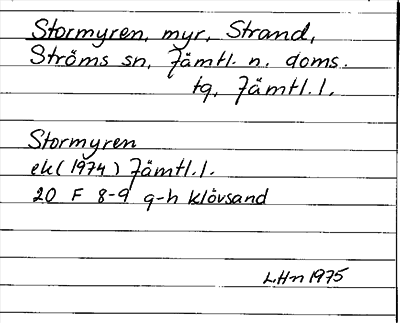 Stormyren, myr, Strand,
Ströms sn, Jämtl. n. doms.
tg, Jämtl. l.
Stormyren
ek (1974) Jämtl. l.
20 F 8-9 g-h Klövsand
LHn 1975